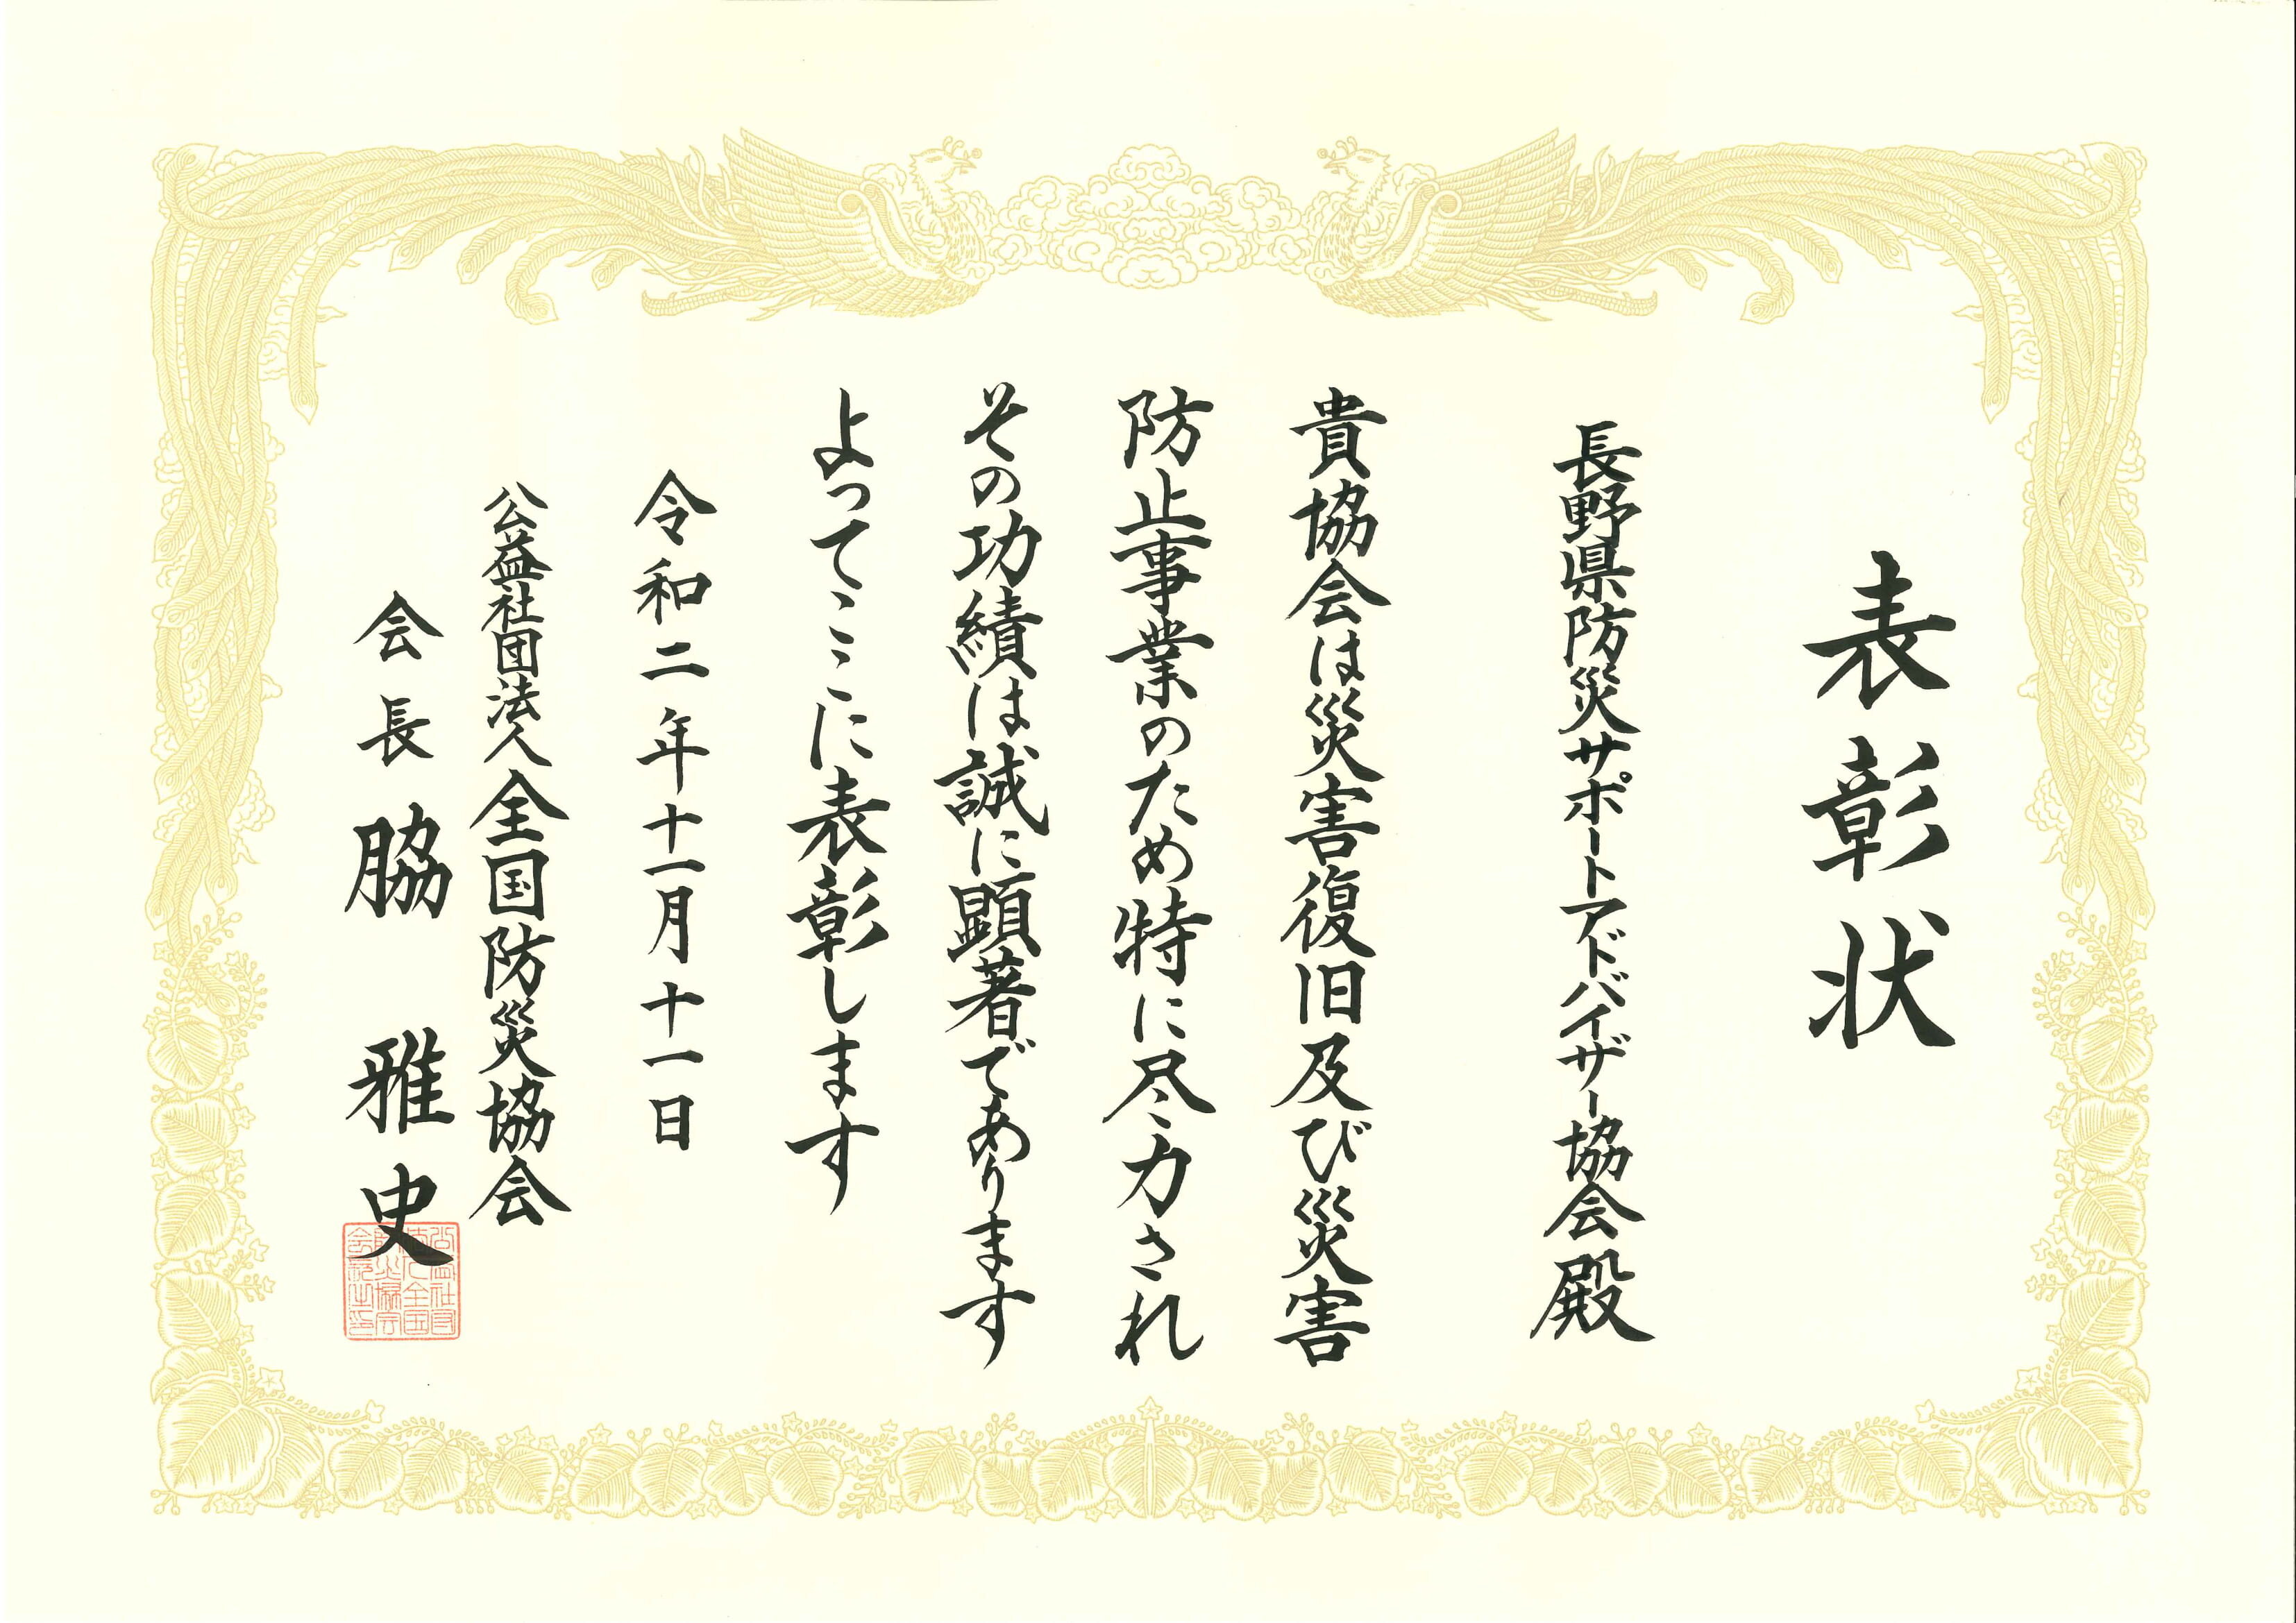 表彰状
長野県防災サポートアドバイザー協会殿
貴協会は災害復旧及び災害
防止事業のため特に尽力され
その功績は誠に顕著であります
よってここに表彰します
令和二年十一月十一日
公益社団法人全国防災協会
会長 脇 雅史
公益社団
法人全国
防災協会
会長之印